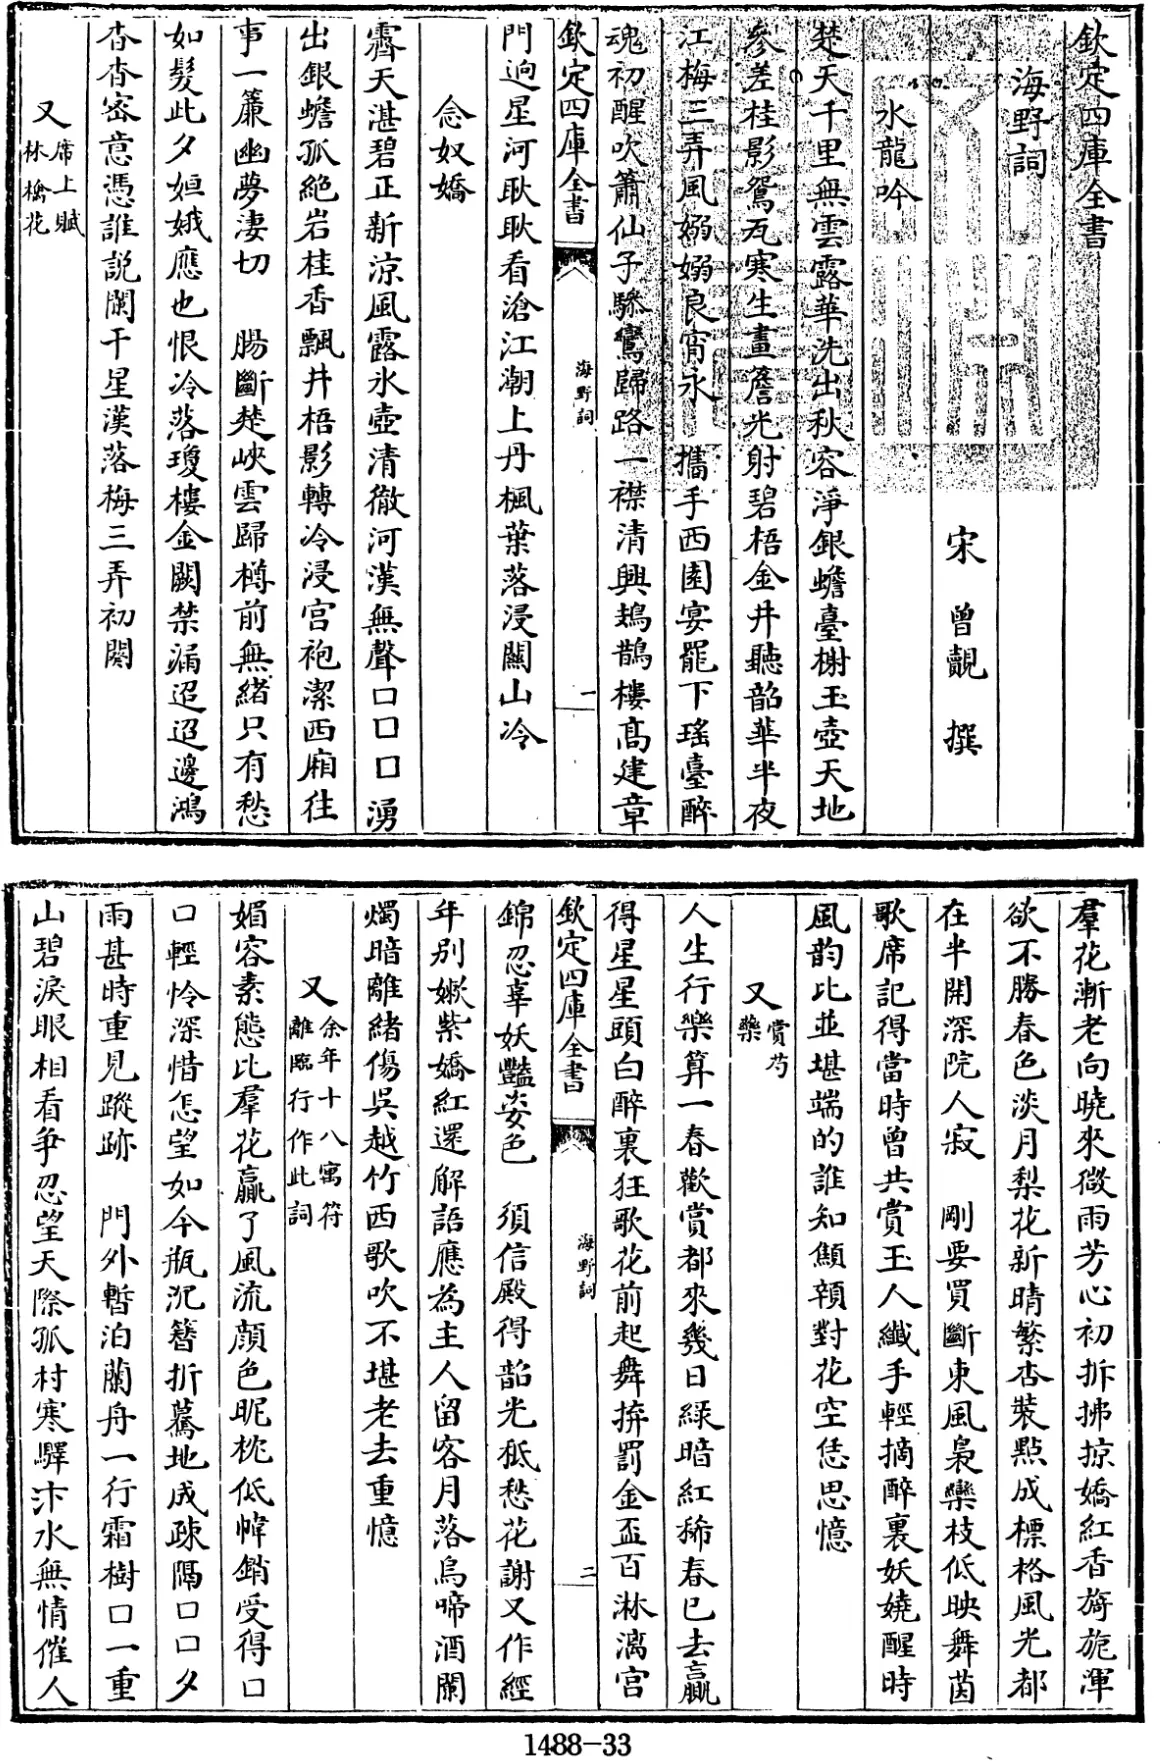 欽定四庫全書
海野詞
宋 曾覿 撰
水龍吟
楚天千里無雲露華洗出秋容淨銀蟾臺榭玉壺天地
參差桂影鴛瓦寒生畫簷光射碧梧金井聽韶華半夜
江梅三弄風嫋嫋良宵永 攜手西園宴罷下瑤臺醉
魂初醒吹簫仙子驂鸞歸路一襟清興鳷鵲樓高建章
欽定四庫全書 海野詞 一
門迥星河耿耿看滄江潮上丹楓葉落浸關山冷
念奴嬌
霽天湛碧正新涼風露氷壺清徹河漢無聲口口口湧
出銀蟾孤絶岩桂香飄井梧影轉冷浸宫袍潔西廂往
事一簾幽夢淒切 腸斷楚峽雲歸樽前無緒只有愁
如髮此夕姮娥應也恨冷落瓊樓金闕禁漏迢迢邊鴻
杳杳宻意憑誰説闌干星漢落梅三弄初闋
又 席上賦林檎花
羣花漸老向曉來微雨芳心初拆拂掠嬌紅香旖旎渾
欲不勝春色淡月梨花新晴繁杏裝㸃成標格風光都
在半開深院人寂 剛要買斷東風裊欒枝低映舞茵
歌席記得當時曾共賞玉人纎手輕摘醉裏妖嬈醒時
風韵比並堪端的誰知顦顇對花空恁思憶
又 賞芍藥
人生行樂算一春歡賞都來幾日緑暗紅稀春已去贏
得星星頭白醉裏狂歌花前起舞拚罰金盃百淋漓宫
欽定四庫全書 海野詞 二
錦忍辜妖豔姿色 須信殿得韶光秪愁花謝又作經
年别嫰紫嬌紅還解語應為主人留客月落烏啼酒闌
燭暗離緒傷吳越竹西歌吹不堪老去重憶
又 余年十八寓符離臨行作此詞
媚容素態比羣花贏了風流顔色昵枕低幃銷受得口
口輕怜深惜怎望如今瓶沉簪折驀地成疎隔口口夕
雨甚時重見蹤跡 門外暫泊蘭舟一行霜樹口一重
山碧淚眼相看争忍望天際孤村寒驛汴水無情催人
1488-33